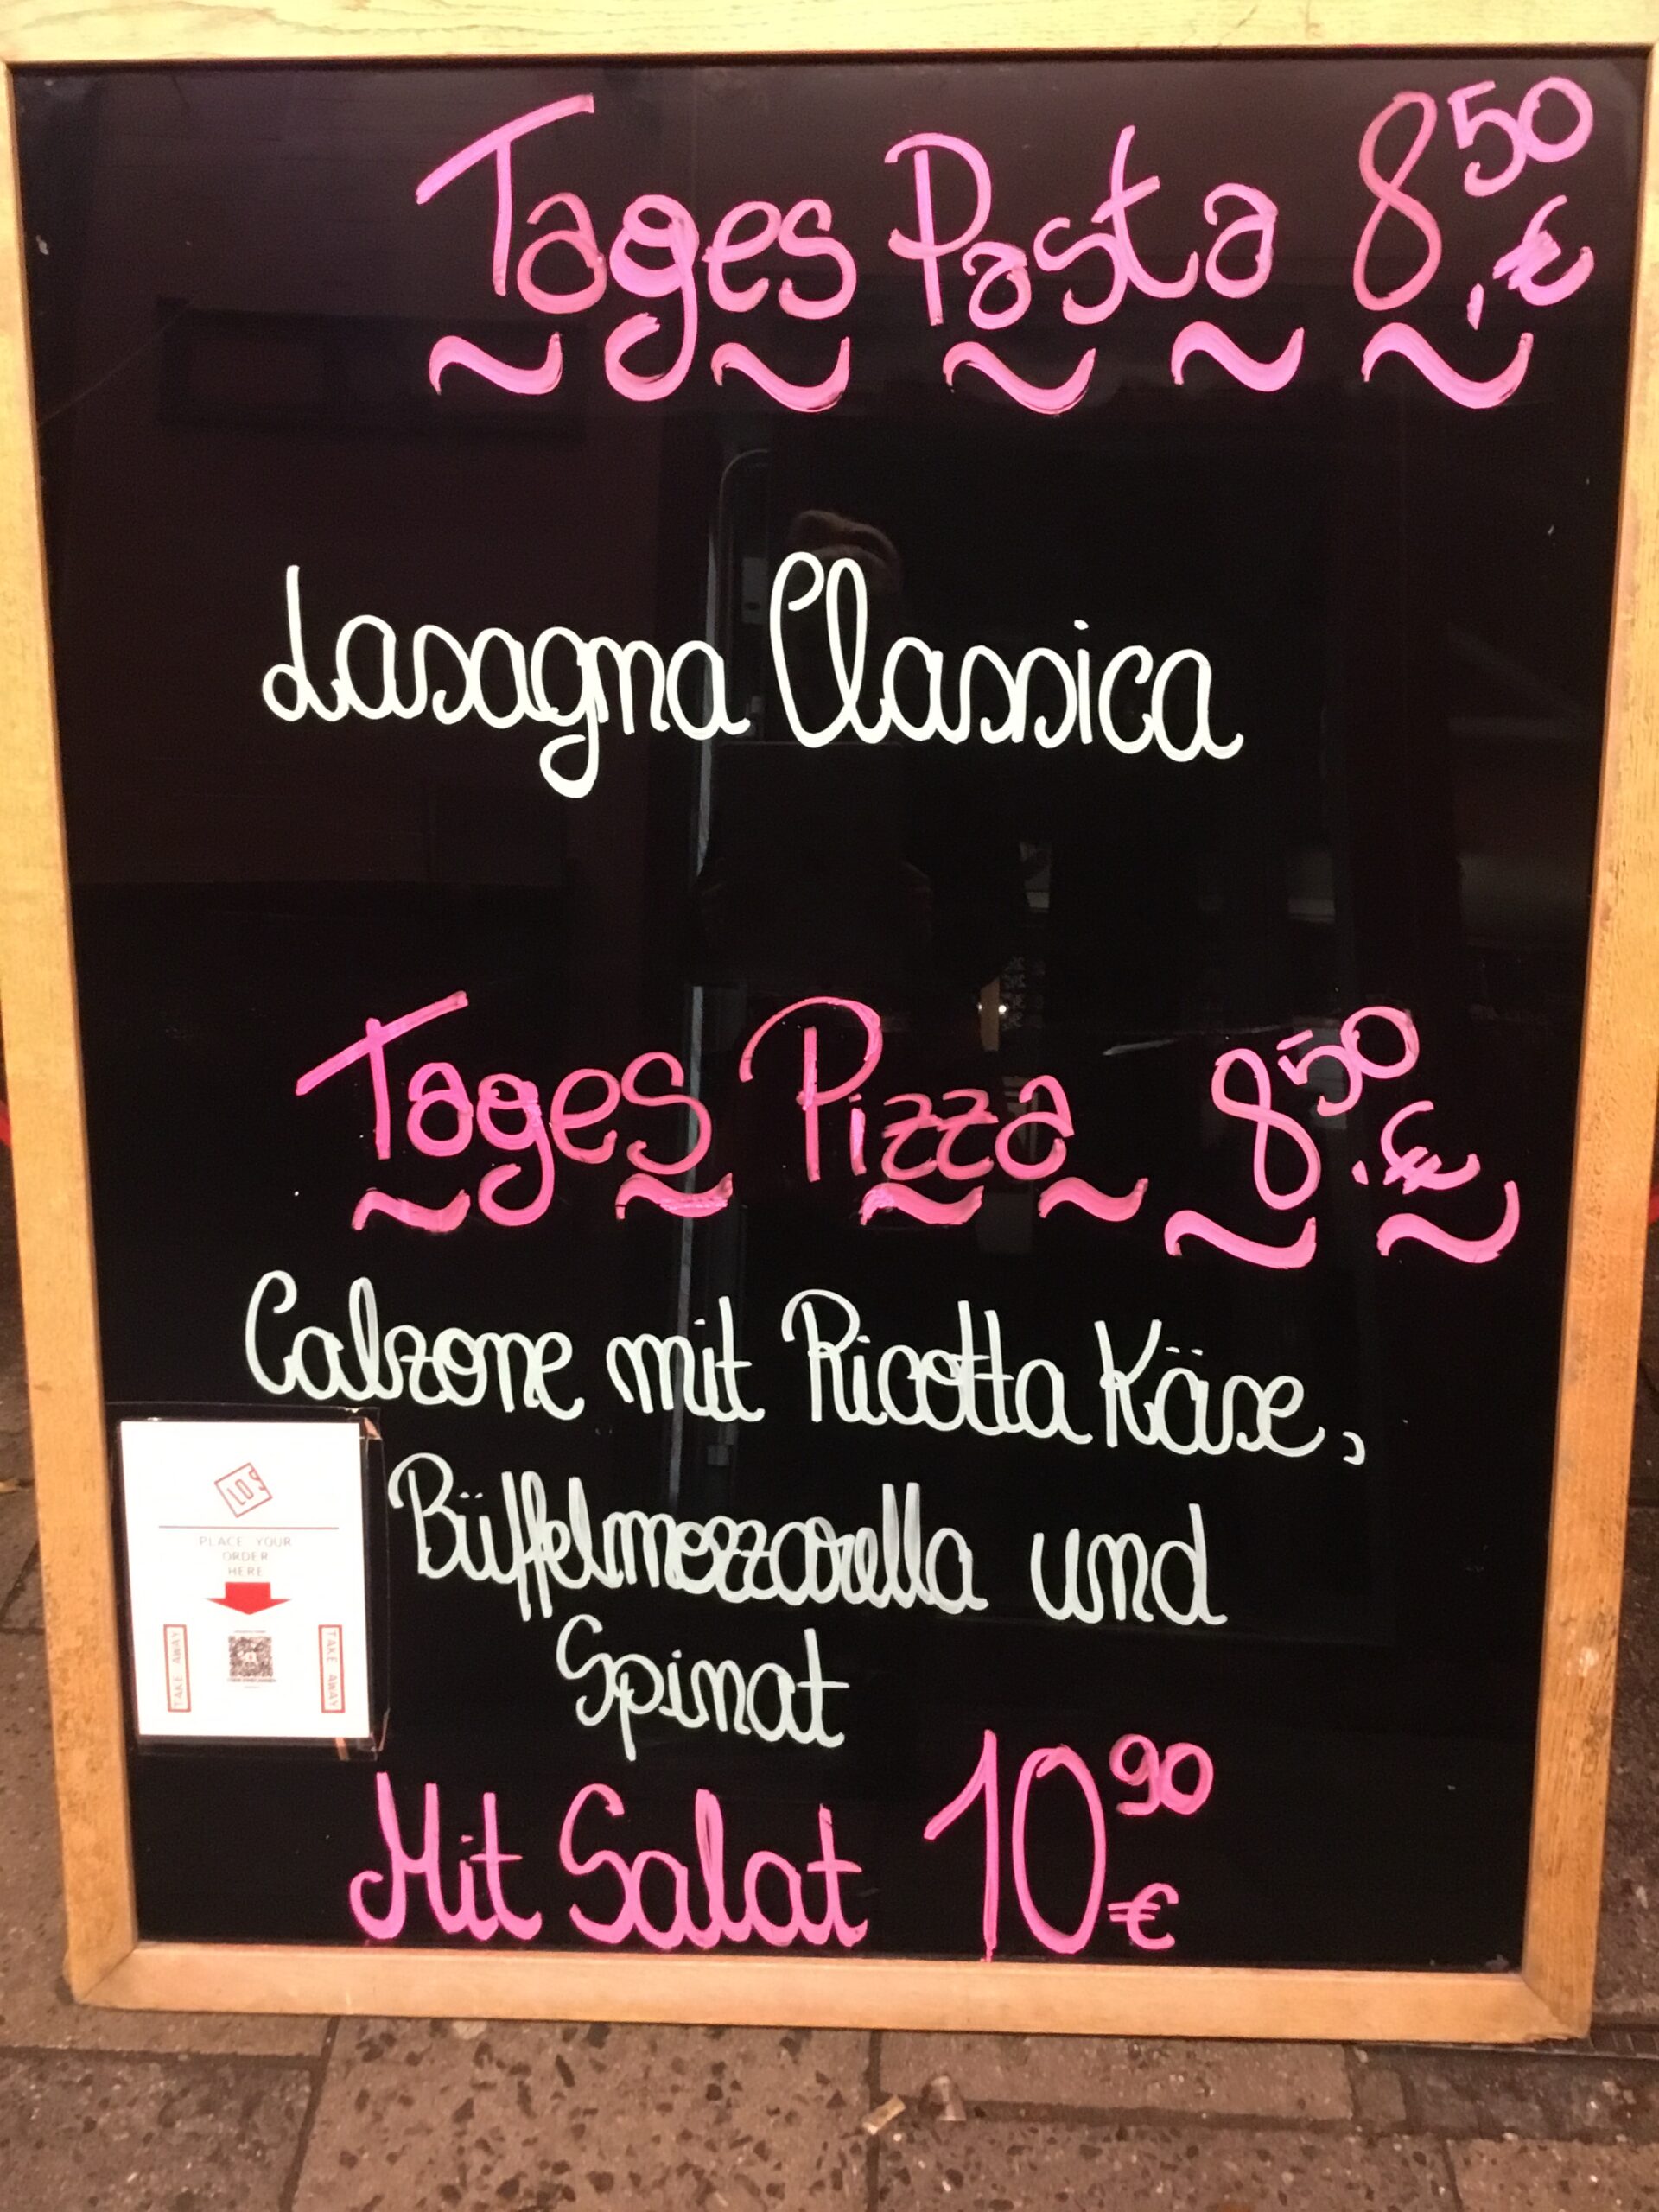 Tages Pasta 8,50 €
Lasagna Classica
Tages Pizza 8.50 €
Calzone mit Ricotta Käse,
Büffelmozzarella und
Spinat
LOS
PLACE YOUR
ORDER
HERE
TAKE AWAY
TAKE AWAY
Mit Salat 10 90 €